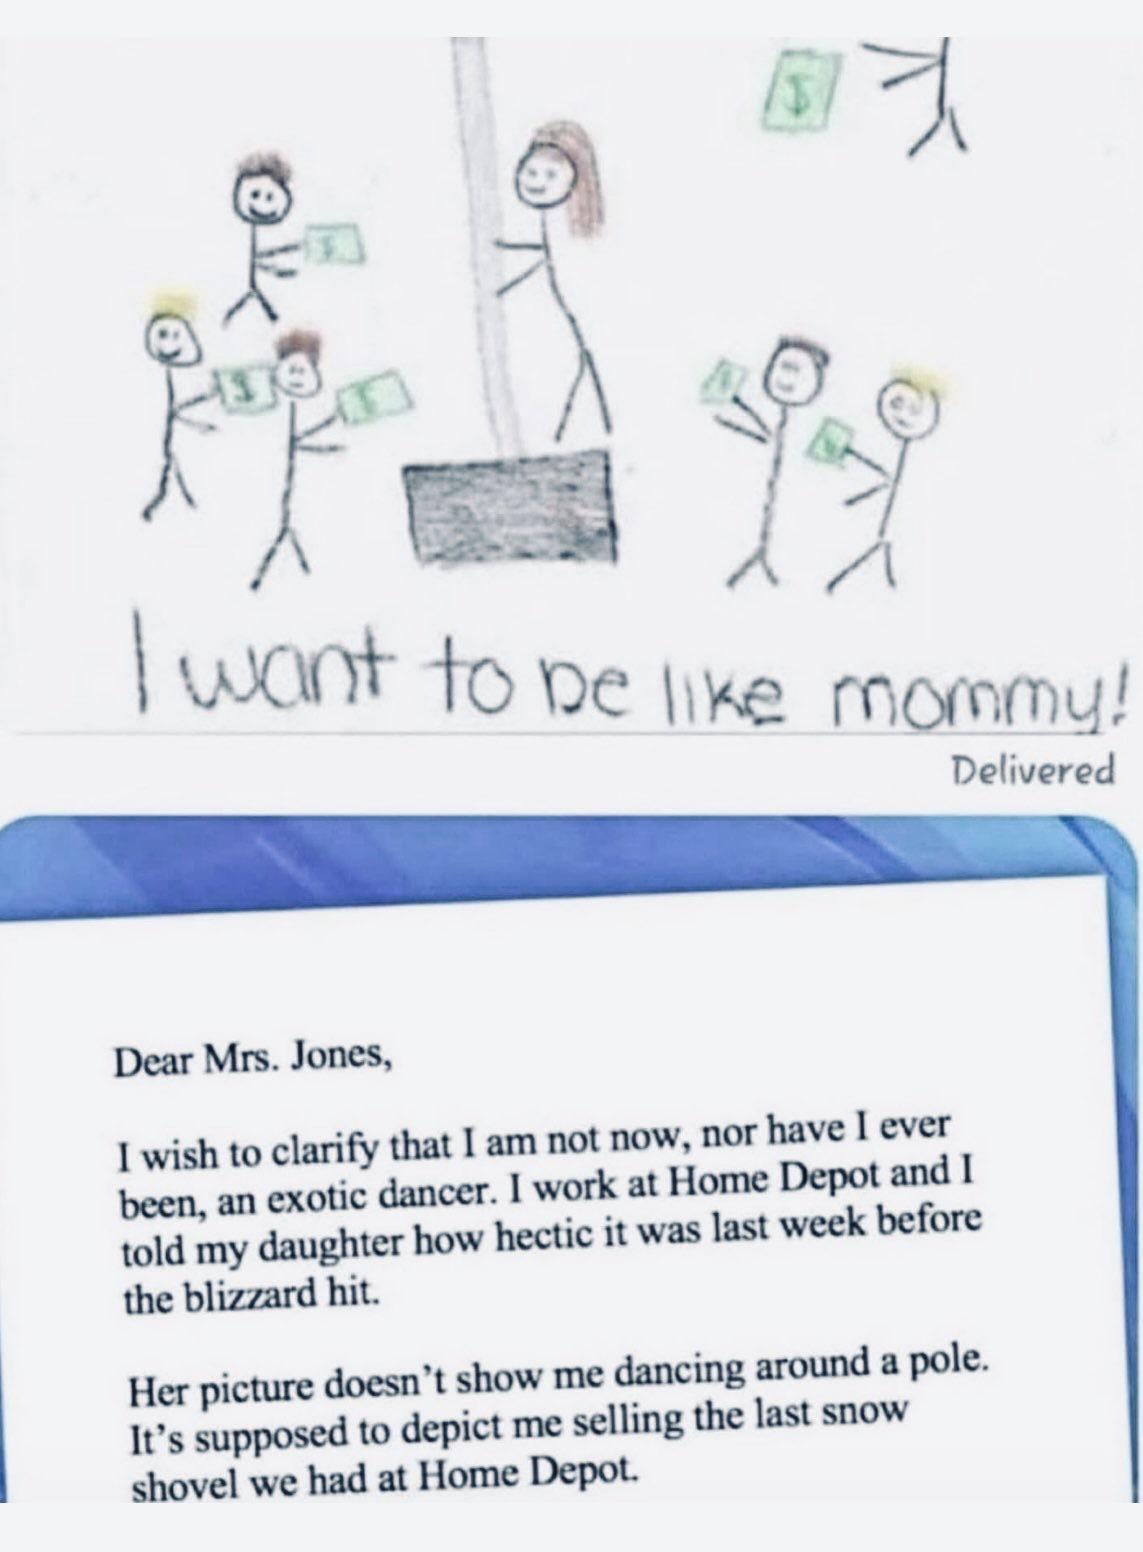 $
$
$
$
I want to be like mommy!
Delivered
Dear Mrs. Jones,
I wish to clarify that I am not now, nor have I ever
been, an exotic dancer. I work at Home Depot and I
told my daughter how hectic it was last week before
the blizzard hit.
Her picture doesn’t show me dancing around a pole.
It’s supposed to depict me selling the last snow
shovel we had at Home Depot.